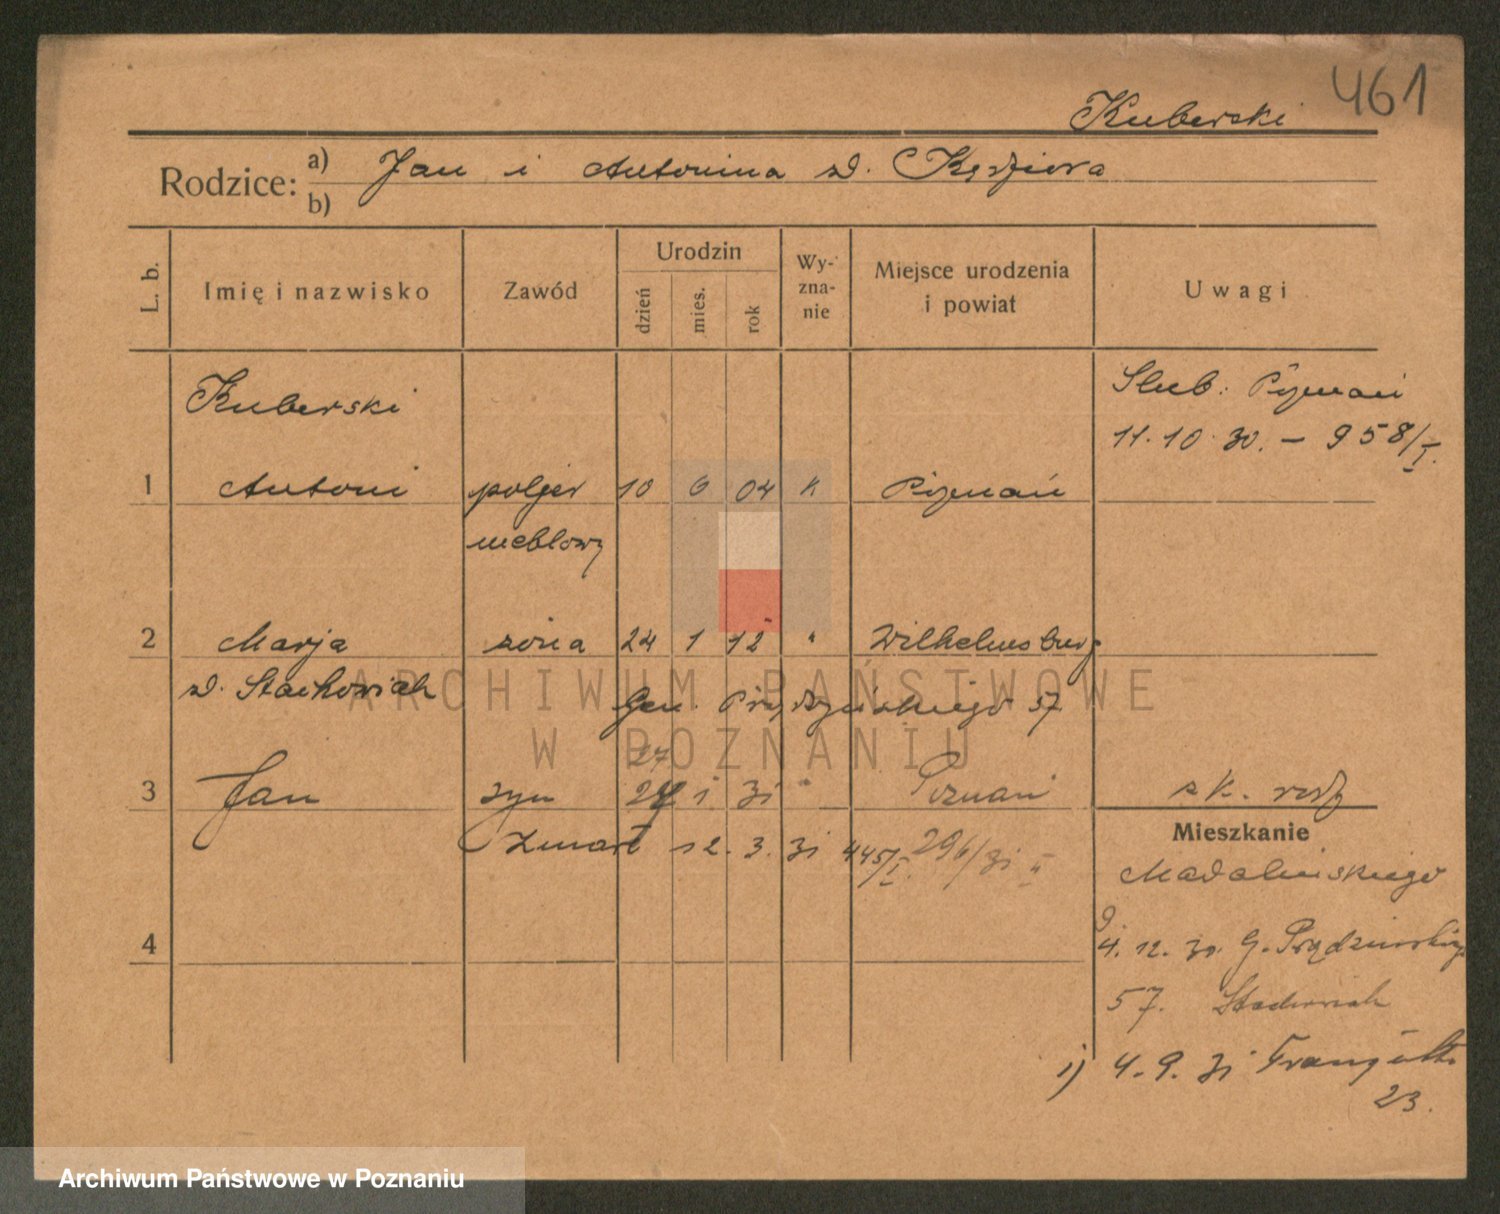 461
Kuberski
Rodzice: a) Jan i Antonina z d. Kędziora
b)
L. b.
Imię i nazwisko
Zawód
Urodzin
dzień
mies.
rok
Wy-
zna-
nie
Miejsce urodzenia
i powiat
Uwagi
Kuberski
Ślub: Poznań
11.10.30. – 958/I.
1 Antoni poljer 10 6 04 k Poznań
meblowy
2 Marja żona 24 1 12 " Wilhelmsburg
z d. Stachowiak Gen. Prądzyńskiego 57
27
3 Jan syn 1 31 " Poznań
Zmarł 12. 3. 31 445/I. 296/31 II
Mieszkanie
Madalińskiego
9.
4.12.30. G. Prądzyńskiego
4
57. Stachowiak
1) 4.9.31
23.
ARCHIWUM PAŃSTWOWE
W POZNANIU
Archiwum Państwowe w Poznaniu